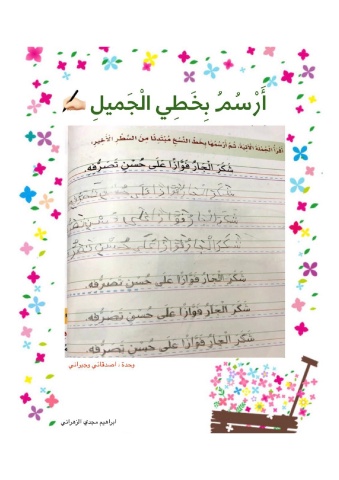 أَرْسُمُ بِخَطِي الْجَميلِ
أَقْرَأُ الْجُمْلَةَ الْآتِيَةَ، ثُمَّ أَرْسُمُهَا بِخَطِّ النَّسْخِ مُبْتَدِئًا مِنَ السَّطْرِ الْأَخِيرِ:
شَكَرَ الْجَارُ فَوَّازًا عَلَى حُسْنِ تَصَرُّفِهِ.
شَكَرَ الْجَارُ فَوَّازًا عَلَى حُسْنِ
شَكَرَ الْجَارُ
شَكَرَ الْجَارُ
شَكَرَ الْجَارُ فَوَّازًا عَلَى حُسْنِ تَصَرُّفِهِ.
شَكَرَ الْجَارُ فَوَّازًا عَلَى حُسْنِ تَصَرُّفِهِ.
شَكَرَ الْجَارُ فَوَّازًا عَلَى حُسْنِ تَصَرُّفِهِ.
وحدة : اصدقائي وجيراني
ابراهيم مجدي الزهراني